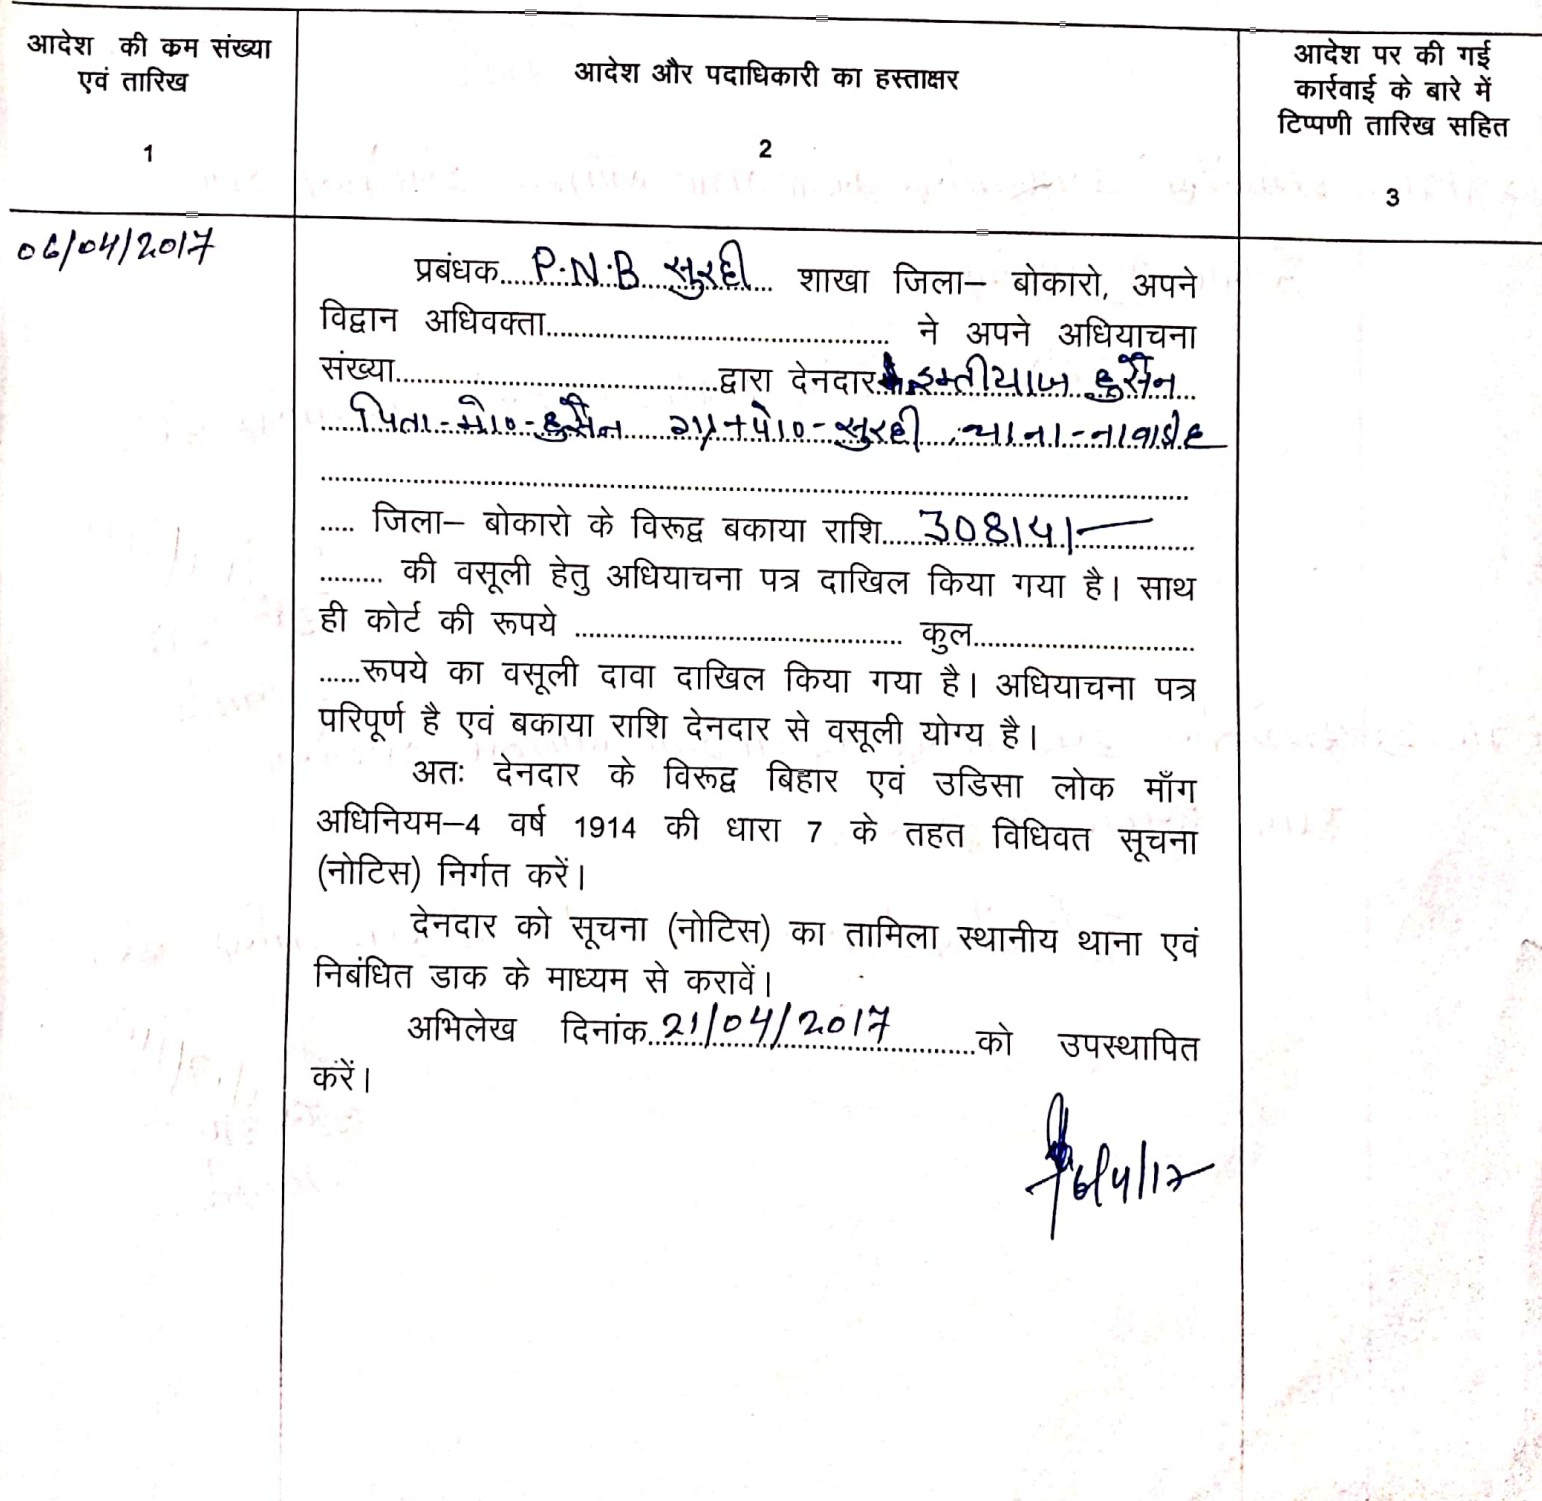 आदेश की क्रम संख्या
एवं तारिख
1
आदेश और पदाधिकारी का हस्ताक्षर
2
आदेश पर की गई
कार्रवाई के बारे में
टिप्पणी तारिख सहित
3
06/04/2017
प्रबंधक....P.N.B सुरही.... शाखा जिला– बोकारो, अपने
विद्वान अधिवक्ता.................................... ने अपने अधियाचना
संख्या....................................द्वारा देनदार इम्तीयाज हुसैन
पिता-मो०-हुसैन ग्रा+पो०-सुरही, थाना-नावाडीह
....................................................................................
..... जिला– बोकारो के विरूद्व बकाया राशि....30814/-....
......... की वसूली हेतु अधियाचना पत्र दाखिल किया गया है। साथ
ही कोर्ट की रूपये .................................... कुल........................
......रूपये का वसूली दावा दाखिल किया गया है। अधियाचना पत्र
परिपूर्ण है एवं बकाया राशि देनदार से वसूली योग्य है।
अतः देनदार के विरूद्व बिहार एवं उडिसा लोक माँग
अधिनियम–4 वर्ष 1914 की धारा 7 के तहत विधिवत सूचना
(नोटिस) निर्गत करें।
देनदार को सूचना (नोटिस) का तामिला स्थानीय थाना एवं
निबंधित डाक के माध्यम से करावें।
अभिलेख दिनांक..21/04/2017..........को उपस्थापित
करें।
6/4/17